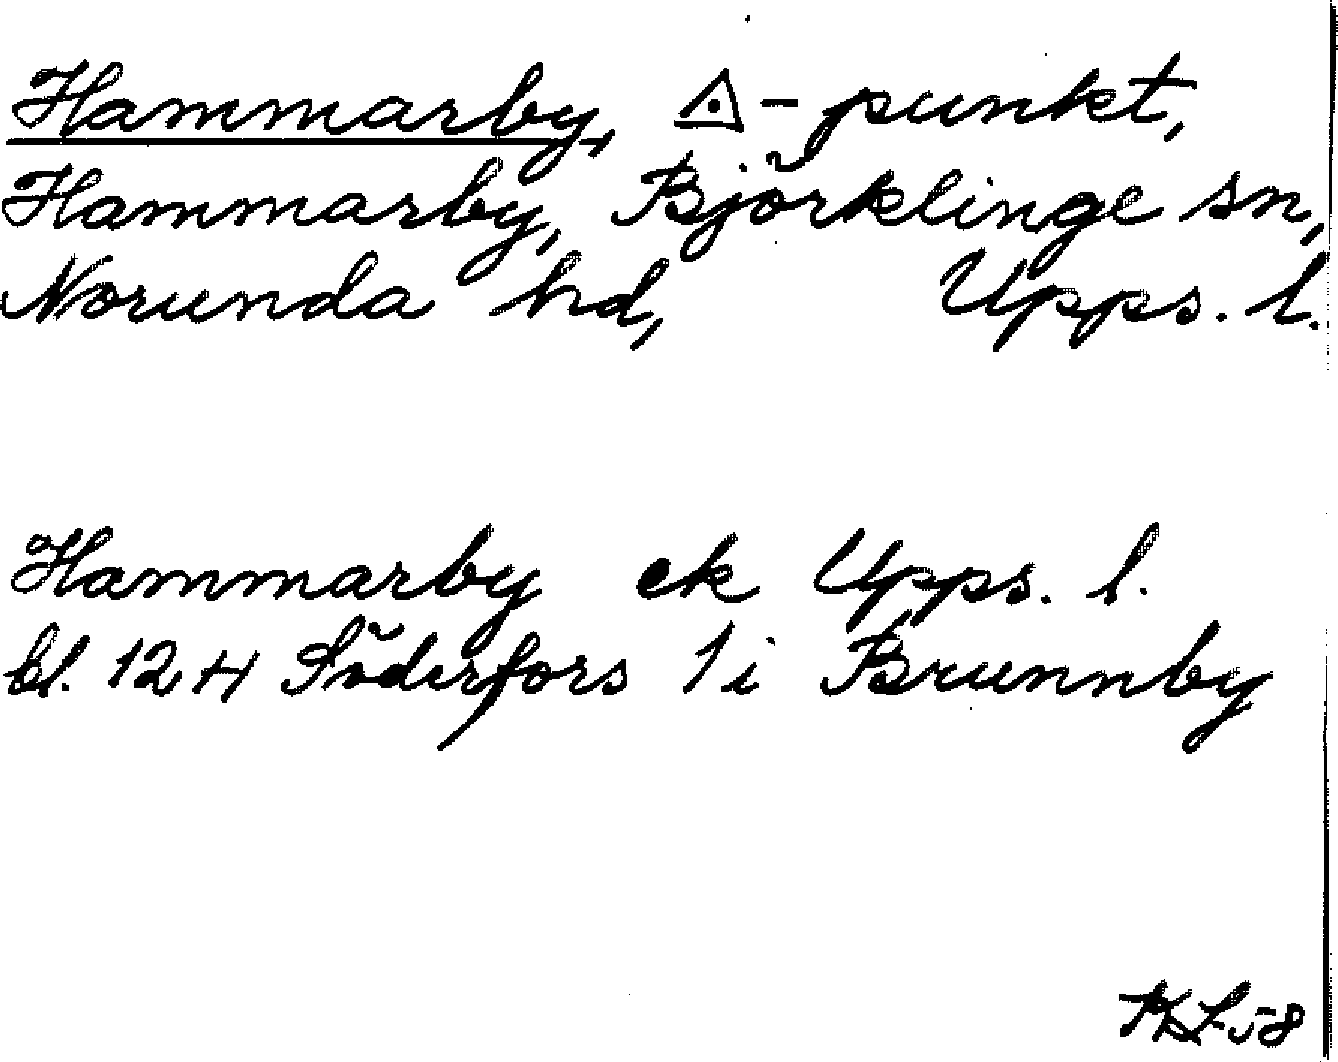 Hammarby, △-punkt,
Hammarby, Björklinge sn,
Norunda hd, Upps. l.
Hammarby ek Upps. l.
bl. 12 H Söderfors 1 i Brunnby